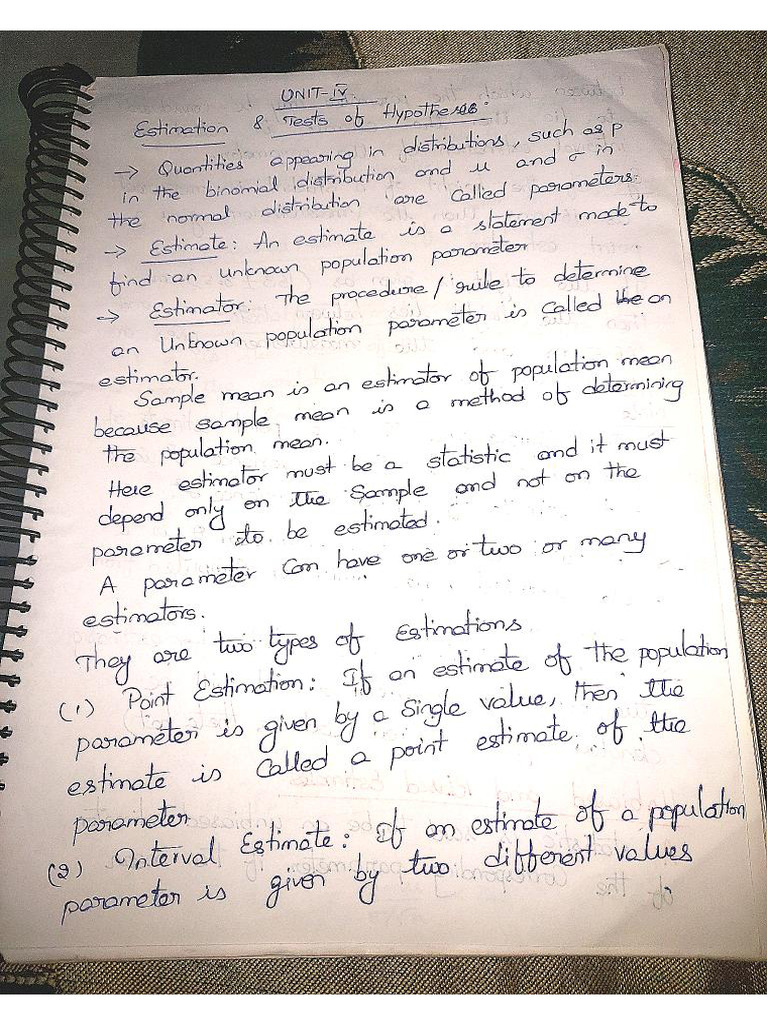 UNIT-IV
Estimation & Tests of Hypothesis.
→ Quantities appearing in distributions, such as p
in the binomial distribution and μ and σ in
the normal distribution are Called parameters.
→ Estimate: An estimate is a statement made to
find an unknown population parameter
→ Estimator: The procedure/rule to determine
an Unknown population parameter is Called an
estimator.
Sample mean is an estimator of population mean
because sample mean is a method of determining
the population mean.
Here estimator must be a statistic and it must
depend only on the Sample and not on the
parameter to be estimated.
A parameter Can have one or two or many
estimators.
They are two types of Estimations
(1) Point Estimation: If an estimate of the population
parameter is given by a Single value, then the
estimate is Called a point estimate of the
parameter
(2) Interval Estimate: If an estimate of a population
parameter is given by two different values